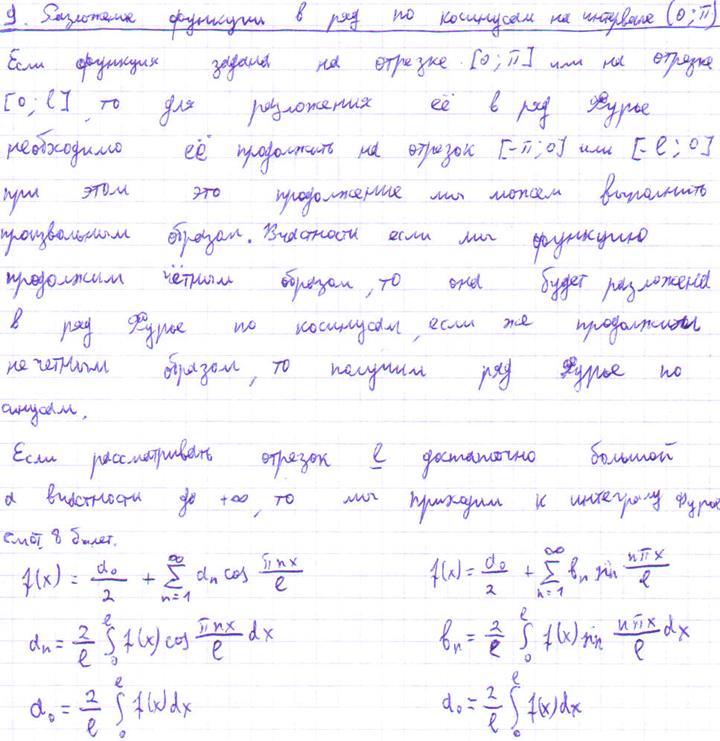 9. Разложение функции в ряд по косинусам на интервале (0; π)
Если функция задана на отрезке [0; π] или на отрезке
[0; l], то для разложения её в ряд Фурье
необходимо её продолжить на отрезок [-π; 0] или [-l; 0]
при этом это продолжение мы можем выполнить
произвольным образом. Вчастности если мы функцию
продолжим чётным образом, то она будет разложена
в ряд Фурье по косинусам, если же продолжим
нечетным образом, то получим ряд Фурье по
синусам.
Если рассматривать отрезок l достаточно большой
а вчастности до +∞, то мы приходим к интегралу Фурье
смот. 8 билет.
f(x) = a₀/2 + ∑_{n=1}^{∞} aₙ cos πnx/l
f(x) = a₀/2 + ∑_{n=1}^{∞} bₙ sin nπx/l
aₙ = 2/l ∫₀^l f(x) cos πnx/l dx
bₙ = 2/l ∫₀^l f(x) sin nπx/l dx
a₀ = 2/l ∫₀^l f(x)dx
a₀ = 2/l ∫₀^l f(x)dx